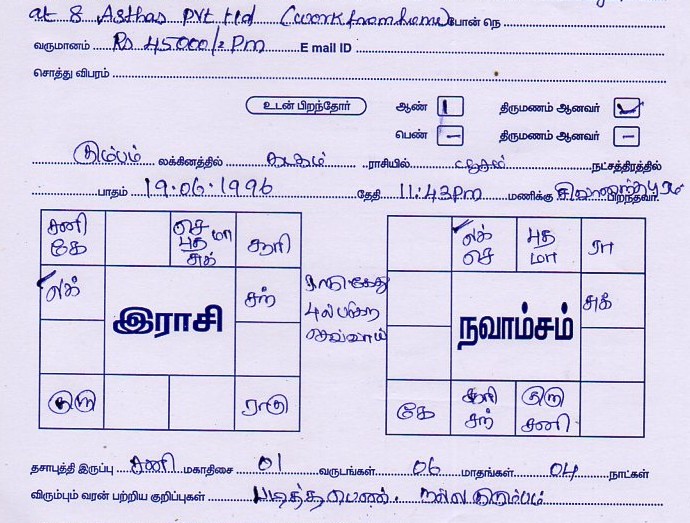 at 8 Asthas Pvt Ltd (work from home) போன் நெ
வருமானம் Rs 45000/= Pm E mail ID
சொத்து விபரம்
உடன் பிறந்தோர் ஆண் 1 திருமணம் ஆனவர்
பெண் – திருமணம் ஆனவர் –
கும்பம் லக்கினத்தில் கடகம் ராசியில் நட்சத்திரத்தில்
பாதம் 19.06.1996 தேதி 11:43 PM மணிக்கு பிறந்தவர்.
சனி கே
செ புத மா சுக்
சூரி
லக்
சந்
இராசி
குரு
ராகு
செவ்வாய்
லக் செ
புத மா
ரா
சுக்
நவாம்சம்
கே
சூரி சந்
குரு சனி
தசாபுத்தி இருப்பு சனி மகாதிசை 01 வருடங்கள் 06 மாதங்கள் 04 நாட்கள்
விரும்பும் வரன் பற்றிய குறிப்புகள் படித்த பெண். நல்ல குடும்பம்